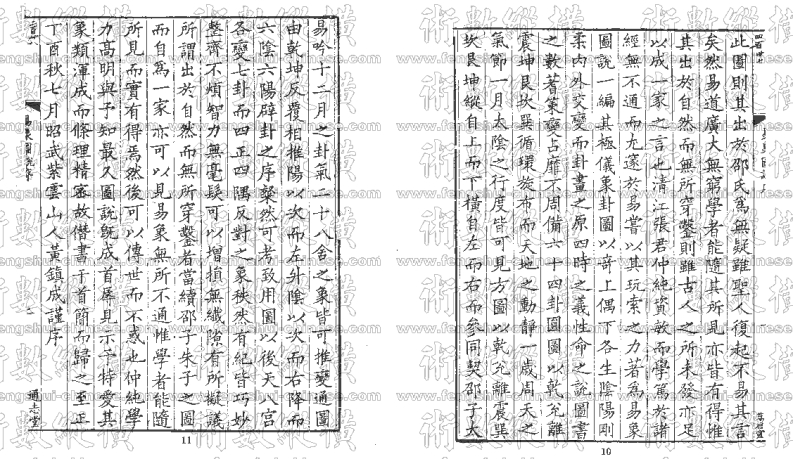 此圖則其出於邵氏爲無疑雖聖人復起不易其言
矣然易道廣大無窮學者能隨其所見亦皆有得惟
其出於自然而無所穿鑿則雖古人之所未發亦足
以成一家之言也清江張君仲純資敏而學篤於諸
經無不通而尤邃於易嘗以其玩索之力著爲易象
圖說一編其極儀象卦圖以奇上偶下各生陰陽剛
柔內外交變而卦畫之原四時之義性命之說圖書
之數著策變占靡不周備六十四卦圓圖以乾兊離
震坤艮坎巽循環旋布而天地之動靜一歲周天之
氣節一月太陰之行度皆可見方圖以乾兊離震巽
坎艮坤縱自上而下橫自左而右而參同契邵子太
10
易吟十二月之卦氣二十八舍之象皆可推變通圖
由乾坤反覆相推陽以次而左升陰以次而右降而
六陰六陽辟卦之序粲然可考致用圖以後天八宮
各變七卦而四正四隅反對之象秩然有紀皆巧妙
整齊不煩智力無毫髮可以增損無纖隙有所擬議
所謂出於自然而無所穿鑿者當續邵子朱子之圖
而自爲一家亦可以見易象無所不通惟學者能隨
所見而實有得焉然後可以傳世而不惑也仲純學
力高明與予知最久圖說旣成首辱見示予特愛其
象類渾成而條理精密故僭書于首簡而歸之至正
丁酉秋七月昭武紫雲山人黃鎮成謹序
通志堂
11
術數縱橫
www.fengshui-chinese.com